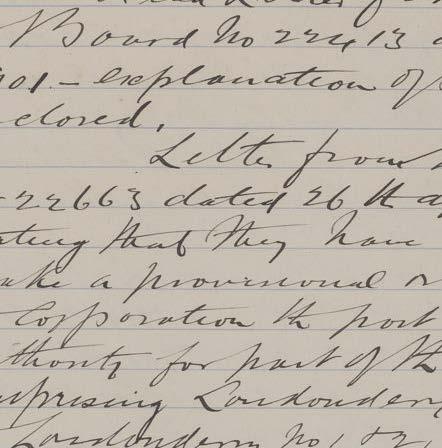 Read Letter f
Board No 22413
901 - explanation of
closed.
Letter from
22663 dated 26th
ating that they have
ake a provisional or
Corporation the port
thority for part of th
mprising Londonderry
Londonderry No 1 & 2